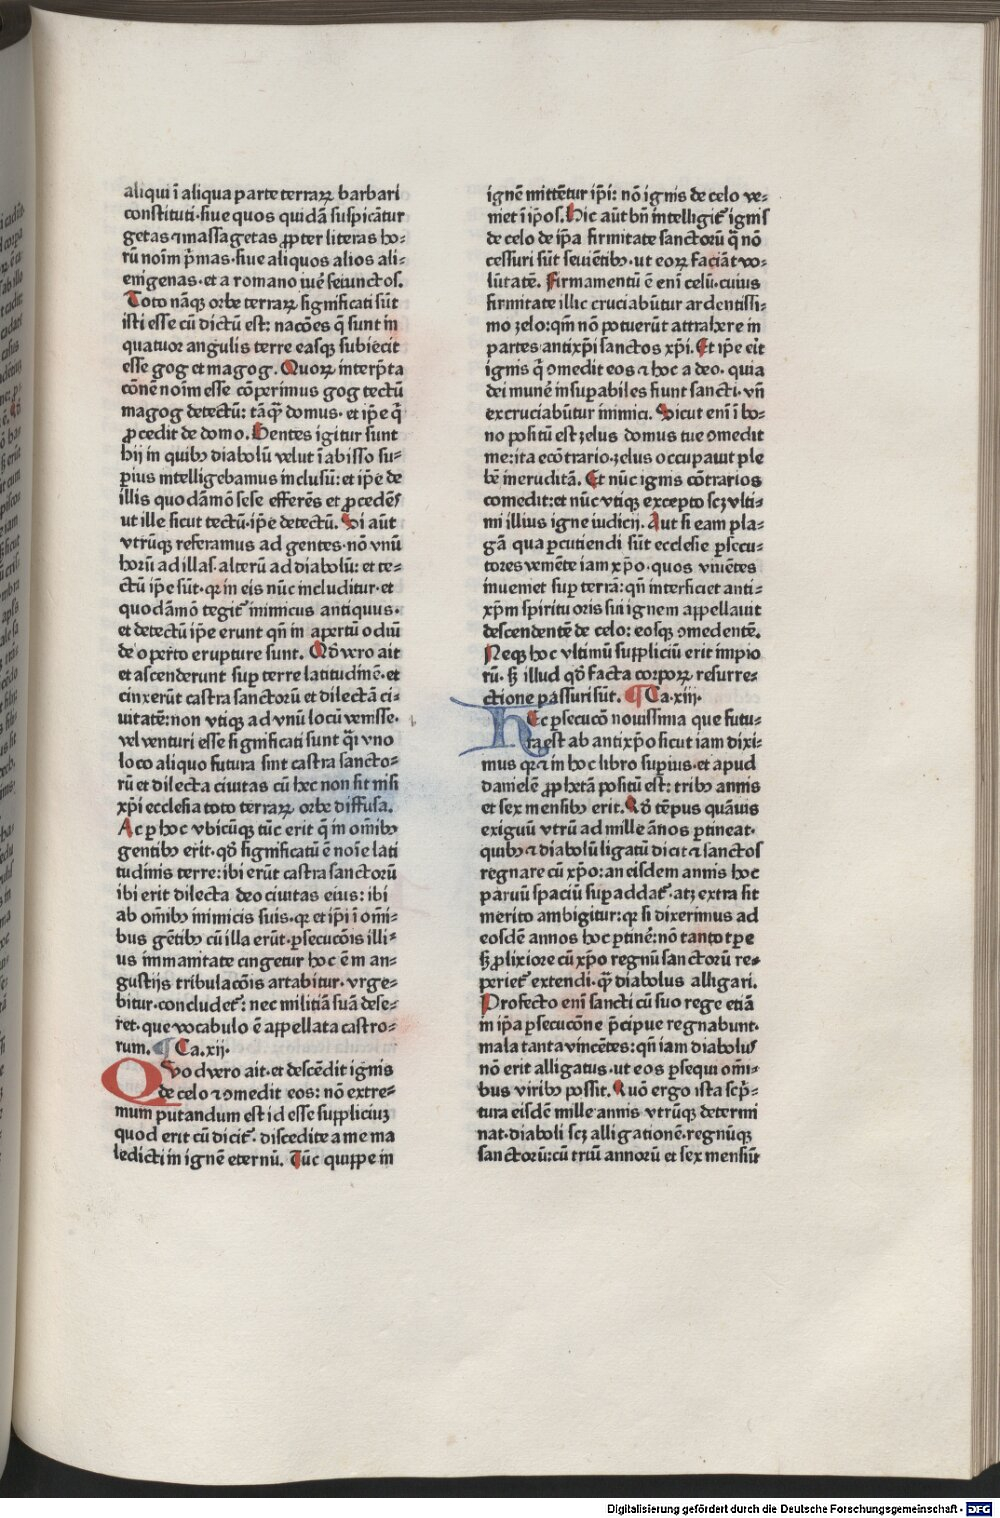 aliqui ī aliqua parte terraꝝ barbari
constituti·siue quos quidā suspicātur
getas ⁊ massagetas ꝓpter literas ho⸗
rū noīm p̄mas·siue aliquos alios ali⸗
enigenas·et a romano iuē seiunctos.
Toto nāqꝫ orbe terraꝝ significati sūt
isti esse cū dictū est: nacōes q̄ sunt in
quatuor angulis terre easqꝫ subiecit
esse gog et magog. Quoꝝ interp̄ta
cōnē noīm esse cōperimus gog tectū
magog detectū: tāq̄ domus·et ip̄e q̄
ꝓcedit de domo. Gentes igitur sunt
hij in quibꝰ diabolū velut ī abisso su⸗
ꝑius intelligebamus inclusū: et ip̄e de
illis quodāmō sese efferēs et ꝓcedēs
ut ille sicut tectū·ip̄e detectū. Si aūt
vtrūqꝫ referamus ad gentes·nō vnū
horū ad illas·alterū ad diabolū: et te⸗
ctū ip̄e sūt·qꝛ in eis nūc includitur·et
quodāmō tegit᷑ inimicus antiquus·
et detectū ip̄e erunt qn̄ in apertū odiū
de operto erupture sunt. Qd̄ vero ait
et ascenderunt suꝑ terre latitudinē·et
cinxerūt castra sanctorū et dilectā ci⸗
uitatē: non vtiqꝫ ad vnū locū venisse·
vel venturi esse significati sunt q̄i vno
loco aliquo futura sint castra sancto⸗
rū et dilecta ciuitas cū hec non sit nisi
xp̄i ecclesia toto terraꝝ orbe diffusa.
Ac ꝑ hoc vbicūqꝫ tūc erit q̄ in om̄ibꝰ
gentibꝰ erit·qd̄ significatū ē noīe lati
tudinis terre: ibi erūt castra sanctorū
ibi erit dilecta deo ciuitas eius: ibi
ab om̄ibꝰ inimicis suis·qꝛ et ip̄i ī om̄i⸗
bus gētibꝰ cū illa erūt·ꝑsecucōis illi⸗
us immanitate cingetur hoc ē in an⸗
gustijs tribulacōis artabitur·vrge⸗
bitur·concludet᷑: nec militiā suā dese⸗
ret·que vocabulo ē appellata castro⸗
rum. ¶ Ca.xij·
Qvod vero ait·et descēdit ignis
de celo ⁊ ꝯmedit eos: nō extre⸗
mum putandum est id esse suppliciuꝫ
quod erit cū dicit᷑·discedite a me ma
ledicti in ignē eternū. Tūc quippe in
ignē mittētur ip̄i: nō ignis de celo ve⸗
niet ī ip̄os. Hic aūt bn̄ intelligit᷑ ignis
de celo de ip̄a firmitate sanctorū q̄ nō
cessuri sūt seuiētibꝰ·ut eoꝝ faciāt vo⸗
lūtatē. Firmamentū ē eni celū·cuius
firmitate illic cruciabūtur ardentissi⸗
mo zelo: qm̄ nō potuerūt attrahere in
partes antixp̄i sanctos xp̄i. Et ip̄e eīt
ignis q̄ ꝯmedit eos ⁊ hoc a deo·quia
dei munē insuꝑabiles fiunt sancti·vn̄
excruciabūtur inimici. Sicut eni ī bo⸗
no positū est zelus domus tue ꝯmedit
me: ita ecōtrario·zelus occupauit ple
bē ineruditā. Et nūc ignis cōtrarios
comedit: et nūc vtiqꝫ excepto scꝫ vlti⸗
mi illius igne iudicij. Aut si eam pla⸗
gā qua ꝑcutiendi sūt ecclesie ꝑsecu⸗
tores veniēte iam xp̄o·quos viuētes
inueniet suꝑ terrā: qn̄ interficiet anti⸗
xp̄m spiritu oris sui ignem appellauit
descendentē de celo: eosqꝫ ꝯmedentē.
Neqꝫ hoc vltimū suppliciū erit impio
rū·sꝫ illud qd̄ facta corpoꝝ resurre⸗
ctione passuri sūt. ¶ Ca.xiij·
Hec ꝑsecucō nouissima que futu⸗
ra est ab antixp̄o sicut iam dixi⸗
mus qꝛ ⁊ in hoc libro suꝑius·et apud
danielē ꝓphetā positū est: tribꝰ annis
et sex mensibꝰ erit. Qd̄ tēpus quāuis
exiguū vtrū ad mille ānos ꝑtineat·
quibꝰ ⁊ diabolū ligatū dicit ⁊ sanctos
regnare cū xp̄o: an eisdem annis hoc
paruū spaciū suꝑaddat᷑·atꝫ extra sit
merito ambigitur: qꝛ si dixerimus ad
eosdē annos hoc ꝑtinē: nō tanto tꝑe
sꝫ ꝓlixiore cū xp̄o regnū sanctorū re⸗
periet᷑ extendi·q̄ diabolus alligari.
Profecto eni sancti cū suo rege etiā
in ip̄a ꝑsecucōne p̄cipue regnabunt·
mala tanta vincētes: qn̄ iam diabolus
nō erit alligatus·ut eos ꝑsequi om̄i⸗
bus viribꝰ possit. Quō ergo ista scp̄⸗
tura eisdē mille annis vtrūqꝫ determi
nat·diaboli scꝫ alligationē·regnūqꝫ
sanctorū: cū triū annorū et sex mensiū
Digitalisierung gefördert durch die Deutsche Forschungsgemeinschaft - DFG